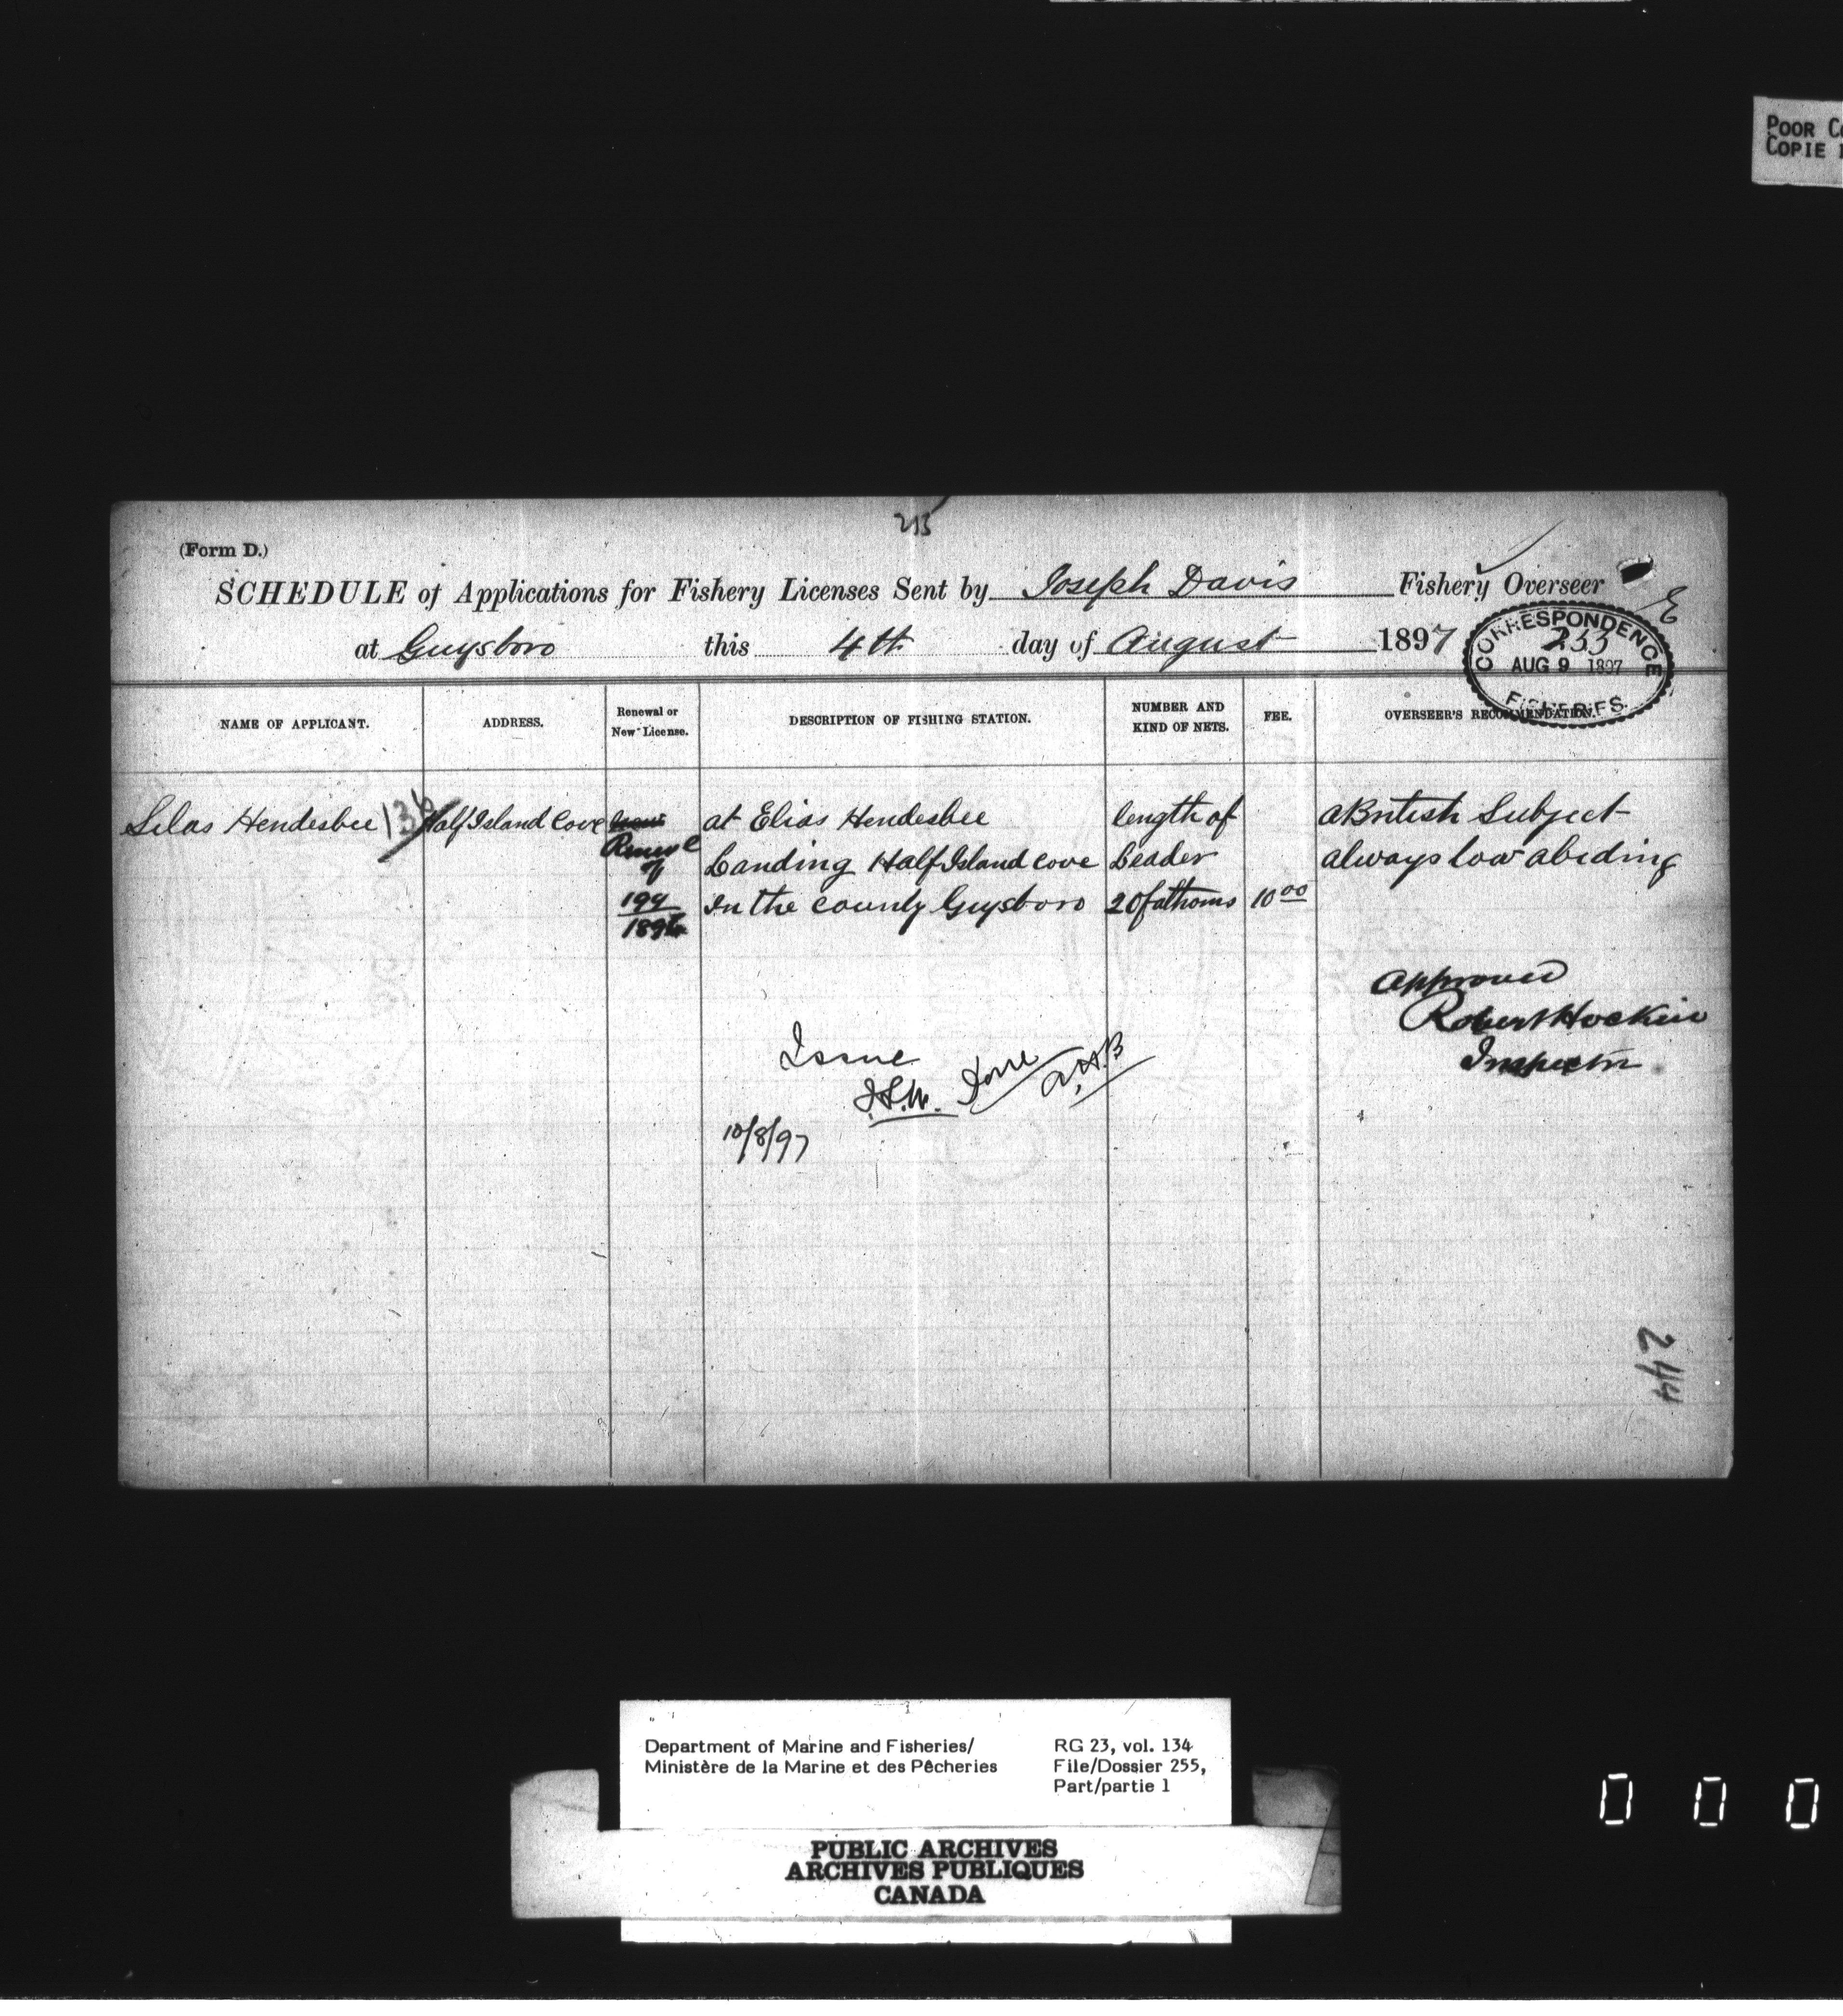 POOR C
COPIE
(Form D.)
SCHEDULE of Applications for Fishery Licenses Sent by Joseph Davis Fishery Overseer
at Guysboro this 4th day of August 1897
CORRESPONDENCE
AUG 9 1897
FISHERIES
NAME OF APPLICANT. ADDRESS. Renewal or New License. DESCRIPTION OF FISHING STATION. NUMBER AND KIND OF NETS. FEE. OVERSEER'S RECOMMENDATION.
Silas Hendesbee 136 Half Island Cove at Elias Hendesbee length of a British Subject
Landing Half Island Cove Leader always law abiding
194 in the county Guysboro 20 fathoms 10 00
Approved
Robert Hockin
Inspector
Issue
10/8/97
244
Department of Marine and Fisheries/ RG 23, vol. 134
Ministère de la Marine et des Pêcheries File/Dossier 255,
Part/partie 1
PUBLIC ARCHIVES
ARCHIVES PUBLIQUES
CANADA
0 0 0